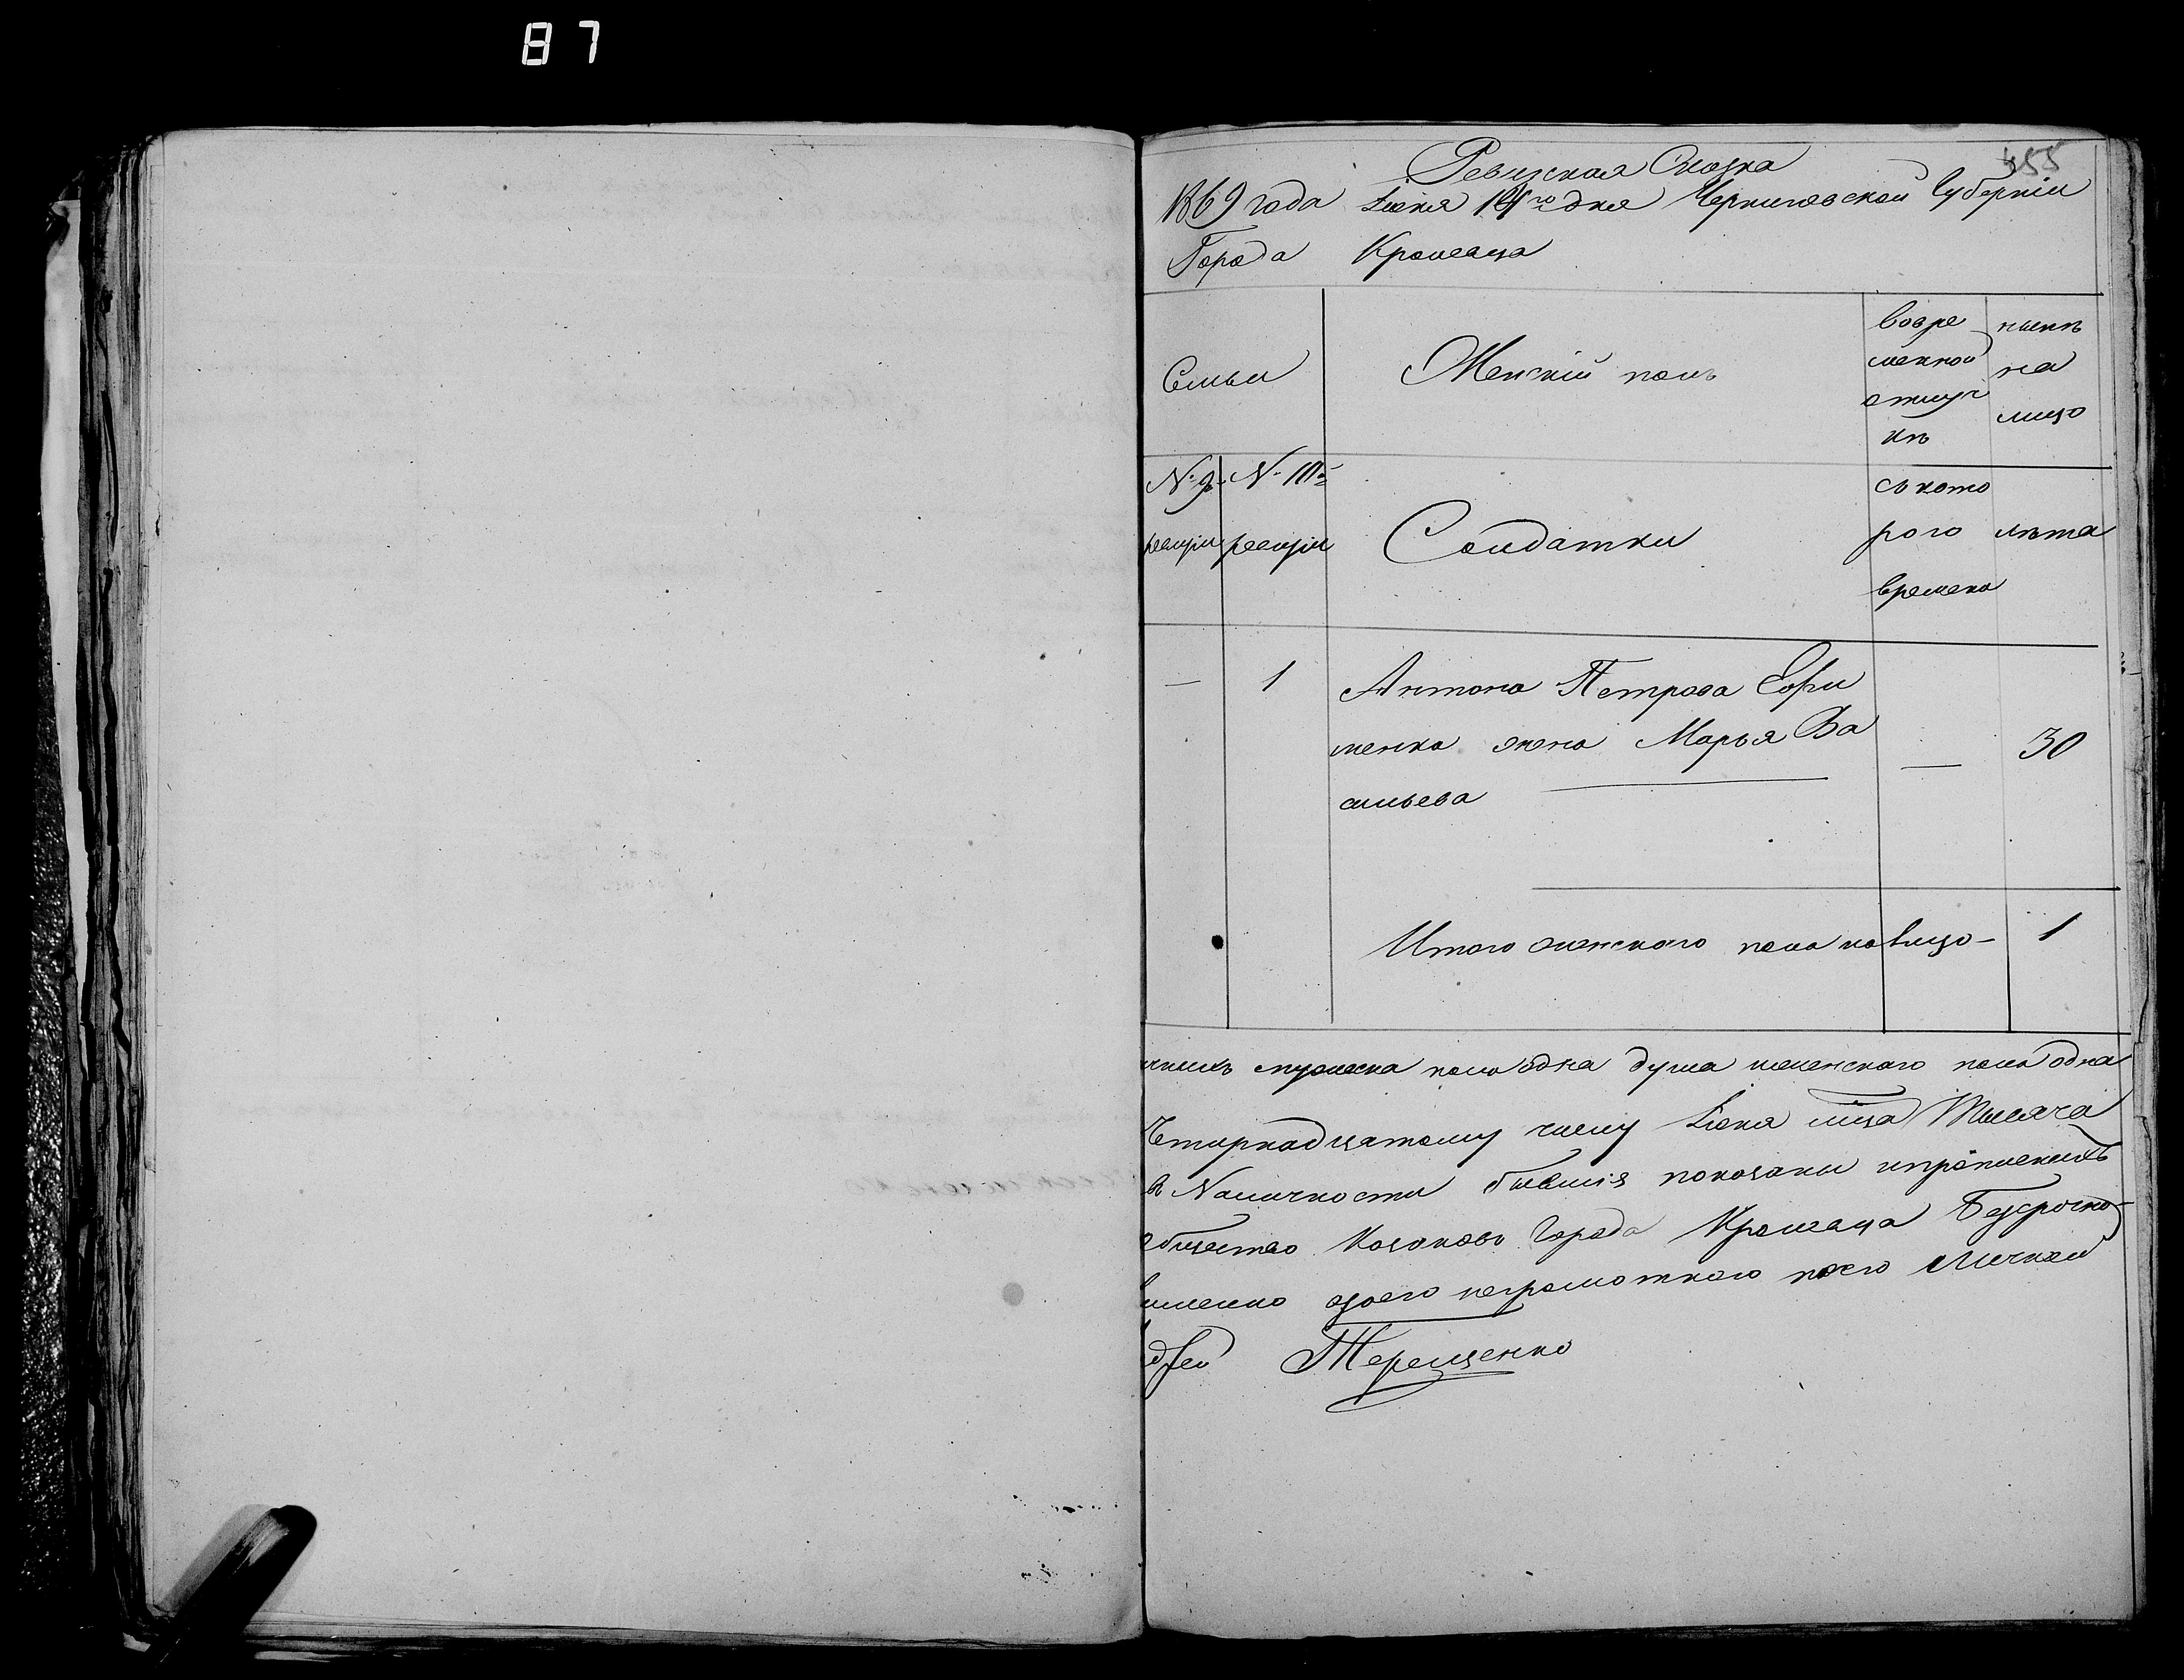 87
455
Ревизская Сказка
1869 года Іюня 14го дня Черниговской Губерніи
Города Кролевца
Семьи
Женскій полъ
Вовре
менной
отлуч
кѣ
нынѣ
на
лицо
№ 9
ревизіи
№ 10й
ревизіи
Солдатки
съ кото
рого
времени
лѣта
— 1 Антона Петрова Ефи
менка жена Марья Ва — 30
сильева
Итого женского пола на лицо — 1
мужеска пола одна душа женского пола одна
Четырнадцатому числу Іюня мца Тысяча
в Наличности бывшія показаны
общество Козаковъ Города Кролевца Безсрочно-
неграмотного по его Личной
Терещенко